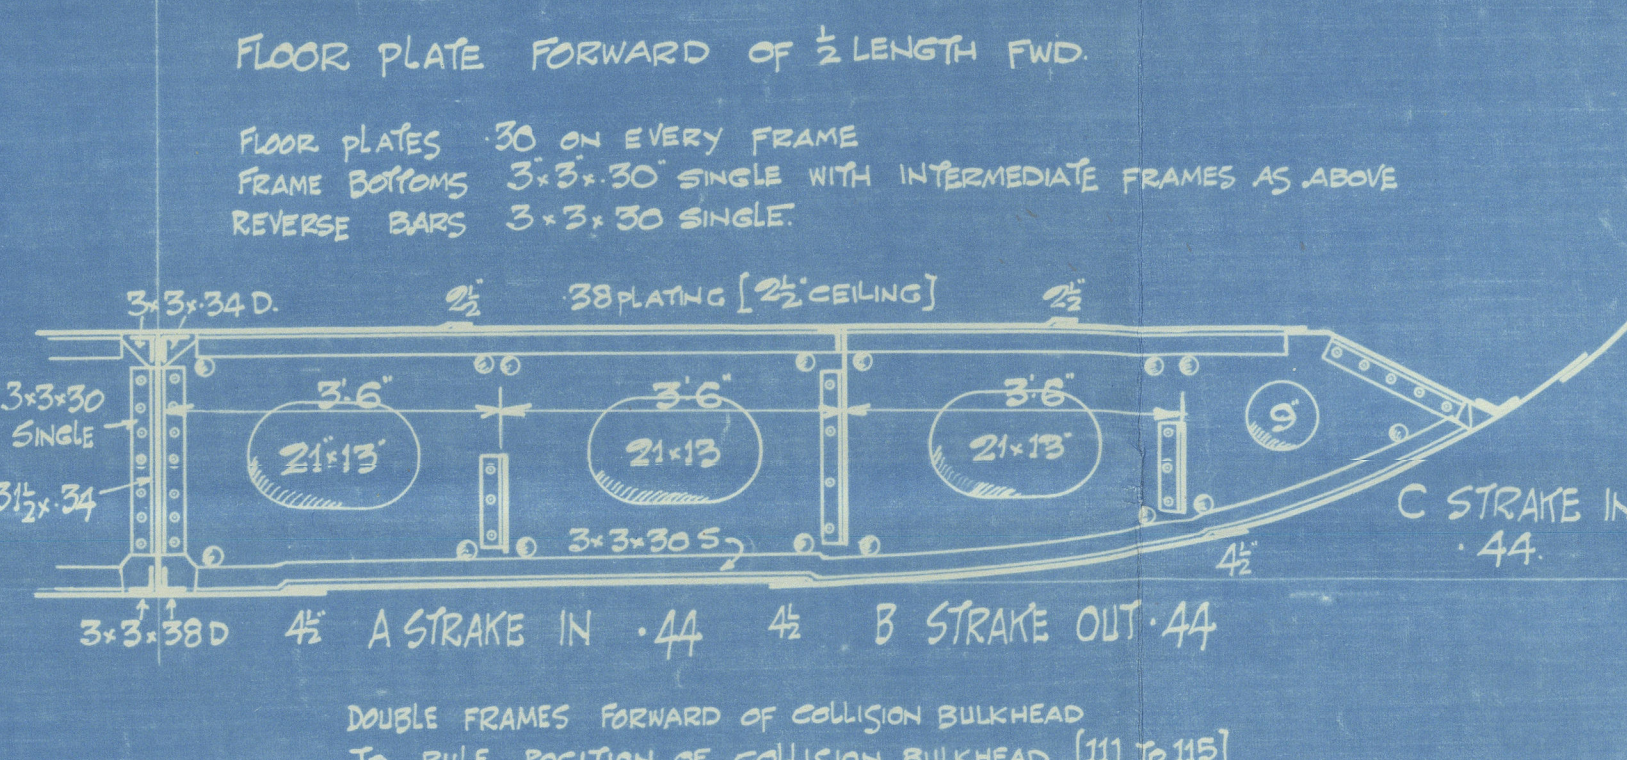 FLOOR PLATE FORWARD OF ½ LENGTH FWD.
FLOOR PLATES .30 ON EVERY FRAME
FRAME BOTTOMS 3"×3"×.30" SINGLE WITH INTERMEDIATE FRAMES AS ABOVE
REVERSE BARS 3×3×30 SINGLE.
3×3×.34 D.
2½"
.38 PLATING [2½" CEILING]
2½"
.3×3×30
SINGLE
3'-6"
3'-6"
3'-6"
21"×13"
21×13
21×13"
9"
31½×.34
3×3×30 S
C STRAKE IN
.44.
4½"
3×3×38 D
4½"
A STRAKE IN .44
4½
B STRAKE OUT .44
DOUBLE FRAMES FORWARD OF COLLISION BULKHEAD
TO RULE POSITION OF COLLISION BULKHEAD [111 TO 115]